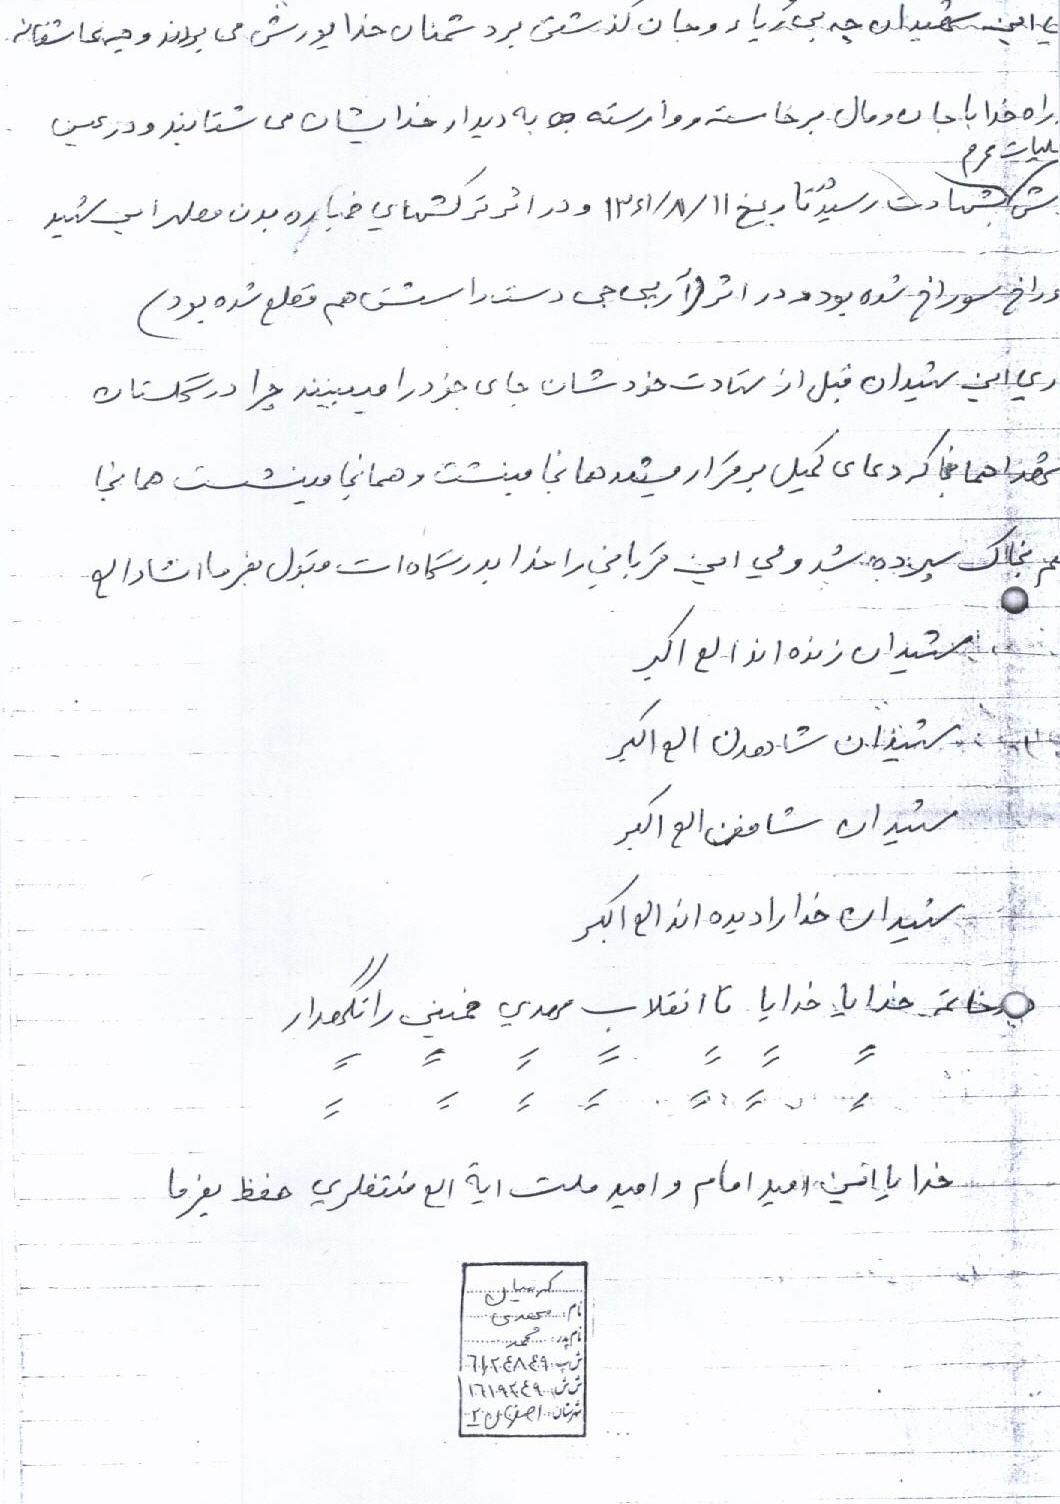 این شهیدان چه بی ریاء و جان گذشتی بر دشمنان خدا یورش می برند و چه عاشقانه
راه خدا با جان و مال برخاسته و وارسته به دیدار خدایشان می شتابند و در عین
محرم
بشهادت رسید تاریخ ۱۳۶۱/۸/۱۱ و در اثر ترکشهای خمپاره بدن مطهر این شهید
سوراخ شده بود و در اثر (آرپی جی دست راستش هم قطع شده بود)
این شهیدان قبل از شهادت خودشان جای خود را میبینند چرا در گلستان
شهدا همانجا که دعای کمیل برقرار میشد همانجا مینشت و همانجا مینشست همانجا
هم بخاک سپرده شد ولی این قربانی را خدا بدرگاه ات قبول بفرما انشاء الله
شهیدان زنده اند الله اکبر
شهیدان شاهدن الله اکبر
شهیدان شافعن الله اکبر
شهیدان خدا را دیده اند الله اکبر
در خاتمه خدایا خدایا تا انقلاب مهدی خمینی را نگهدار
خدایا این امید امام و امید ملت ایة الله منتظری حفظ بفرما
نام: مهدی
نام پدر: محمد
ش پ: ٦١٢٤٨٤٩
ش ش: ١٦١٩٢٤٩
شهرستان: اصفهان ٢